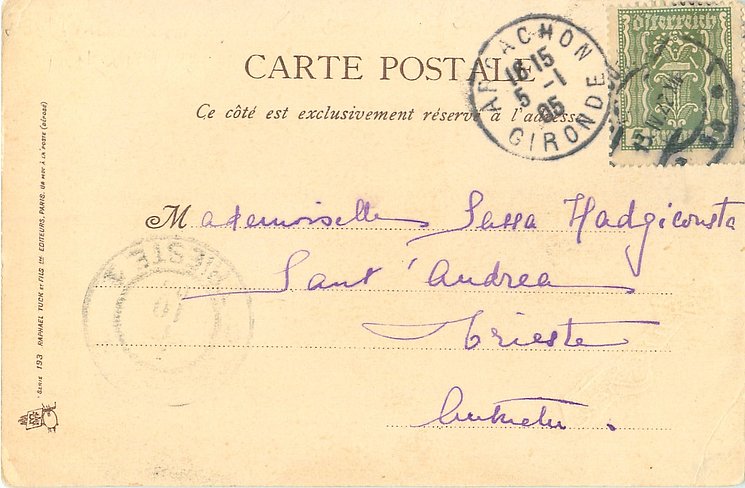 CARTE POSTALE
Ce côté est exclusivement réservé à l'adresse
ARCACHON
16 15
5 -1
05
GIRONDE
Österreich
Mademoiselle Sassa Hadgiconsta
Sant' Andrea
Trieste
TRIESTE
SERIE 193 RAPHAEL TUCK ET FILS LTD EDITEURS, PARIS.